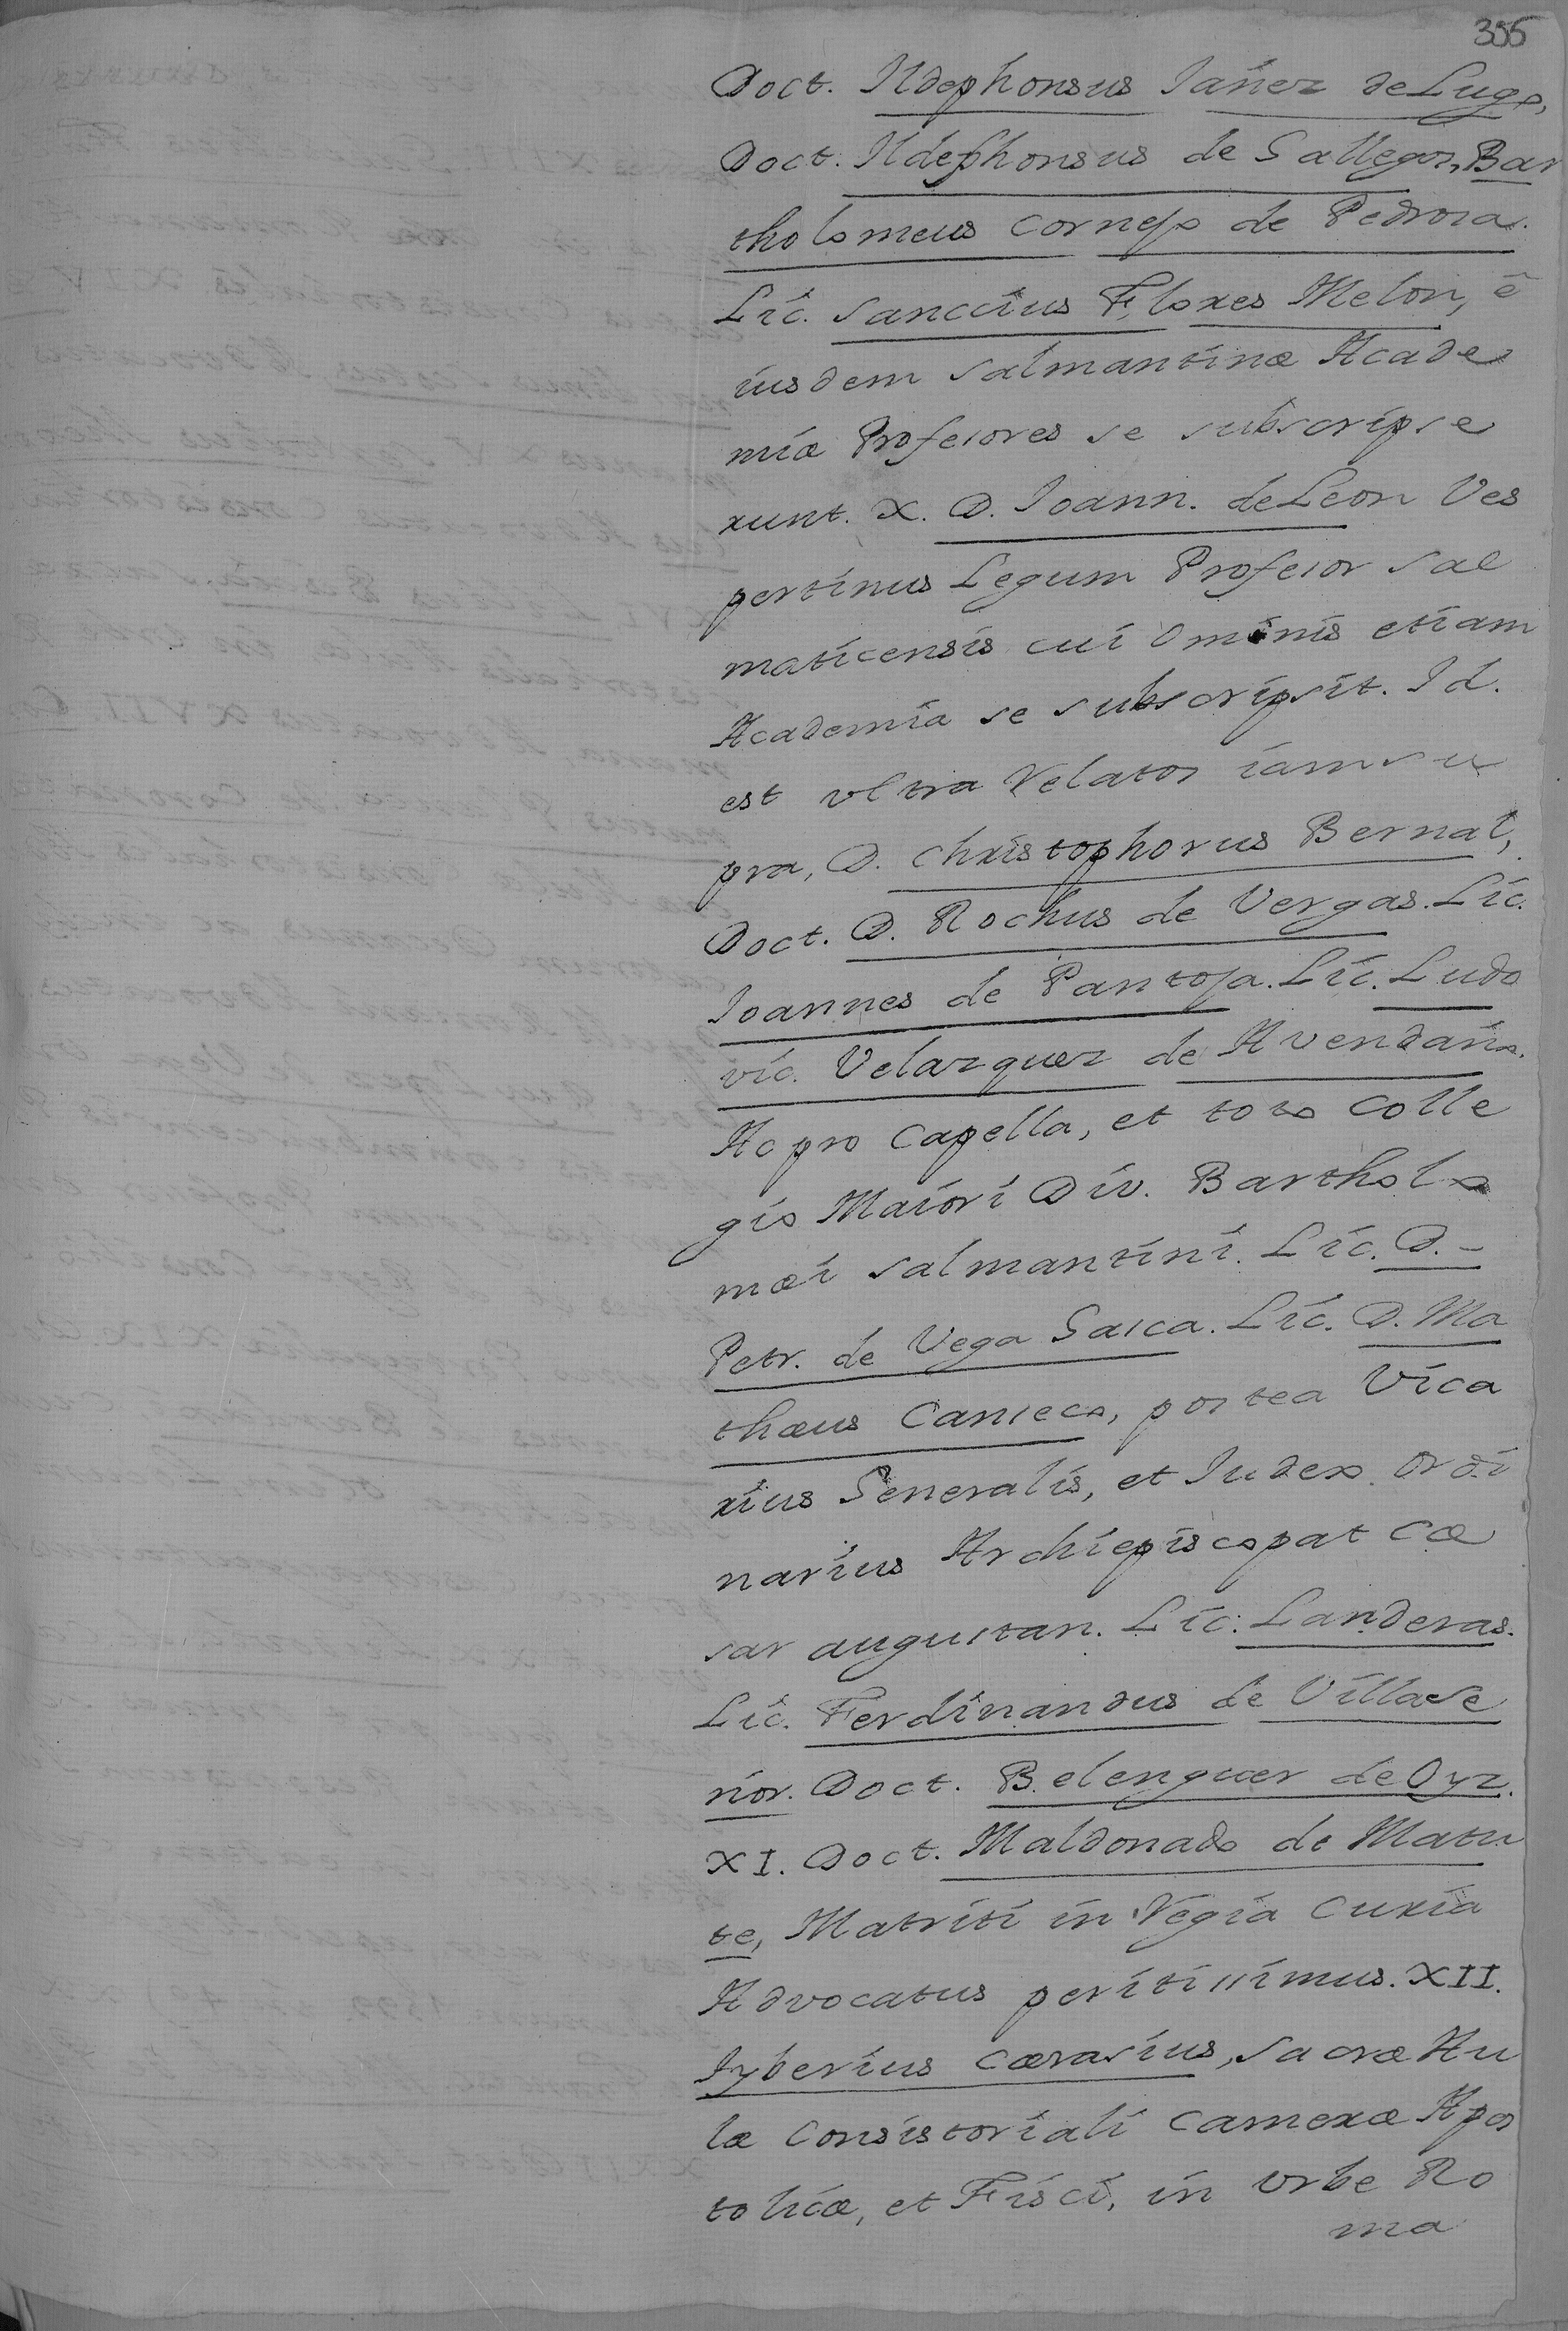 355
Doct. Ildephonsus Iañez de Lugo,
Doct. Ildephonsus de Gallegos, Bar
tholomeus Cornejo de Pedrosa.
Lic. Sanccius Flores Melon, e
iusdem Salmantinæ Acade
miæ Profesores se subscripse
runt. X. D. Ioann. de Leon Ves
pertinus Legum Profesor Sal
maticensis cui Ominis etiam
Academia se subscripsit. Id.
est ultra Relatos iam su
pra, D. Christophorus Bernal,
Doct. D. Rochus de Vergas. Lic.
Ioannes de Pantoja. Lic. Ludo
vic. Velazquez de Avendaño.
Ac pro Capella, et toto Colle
gio Maiori Div. Bartholo
mæi Salmantini. Lic. D. -
Petr. de Vega Gasca. Lic. D. Ma
thæus Canseco, postea Vica
rius Generalis, et Iudex Ordi
narius Archiepiscopat Cæ
sar augustan. Lic: Landeras.
Lic. Ferdinandus de Villase
ñor. Doct. Belenguer de Oyz.
XI. Doct. Maldonado de Matu
te, Matriti in Regia Curia
Advocatus peritissimus. XII.
Tyberius Cærasius, Sacræ Au
læ Consistoriali Cameræ Apos
tolicæ, et Fisci, in Urbe Ro
ma